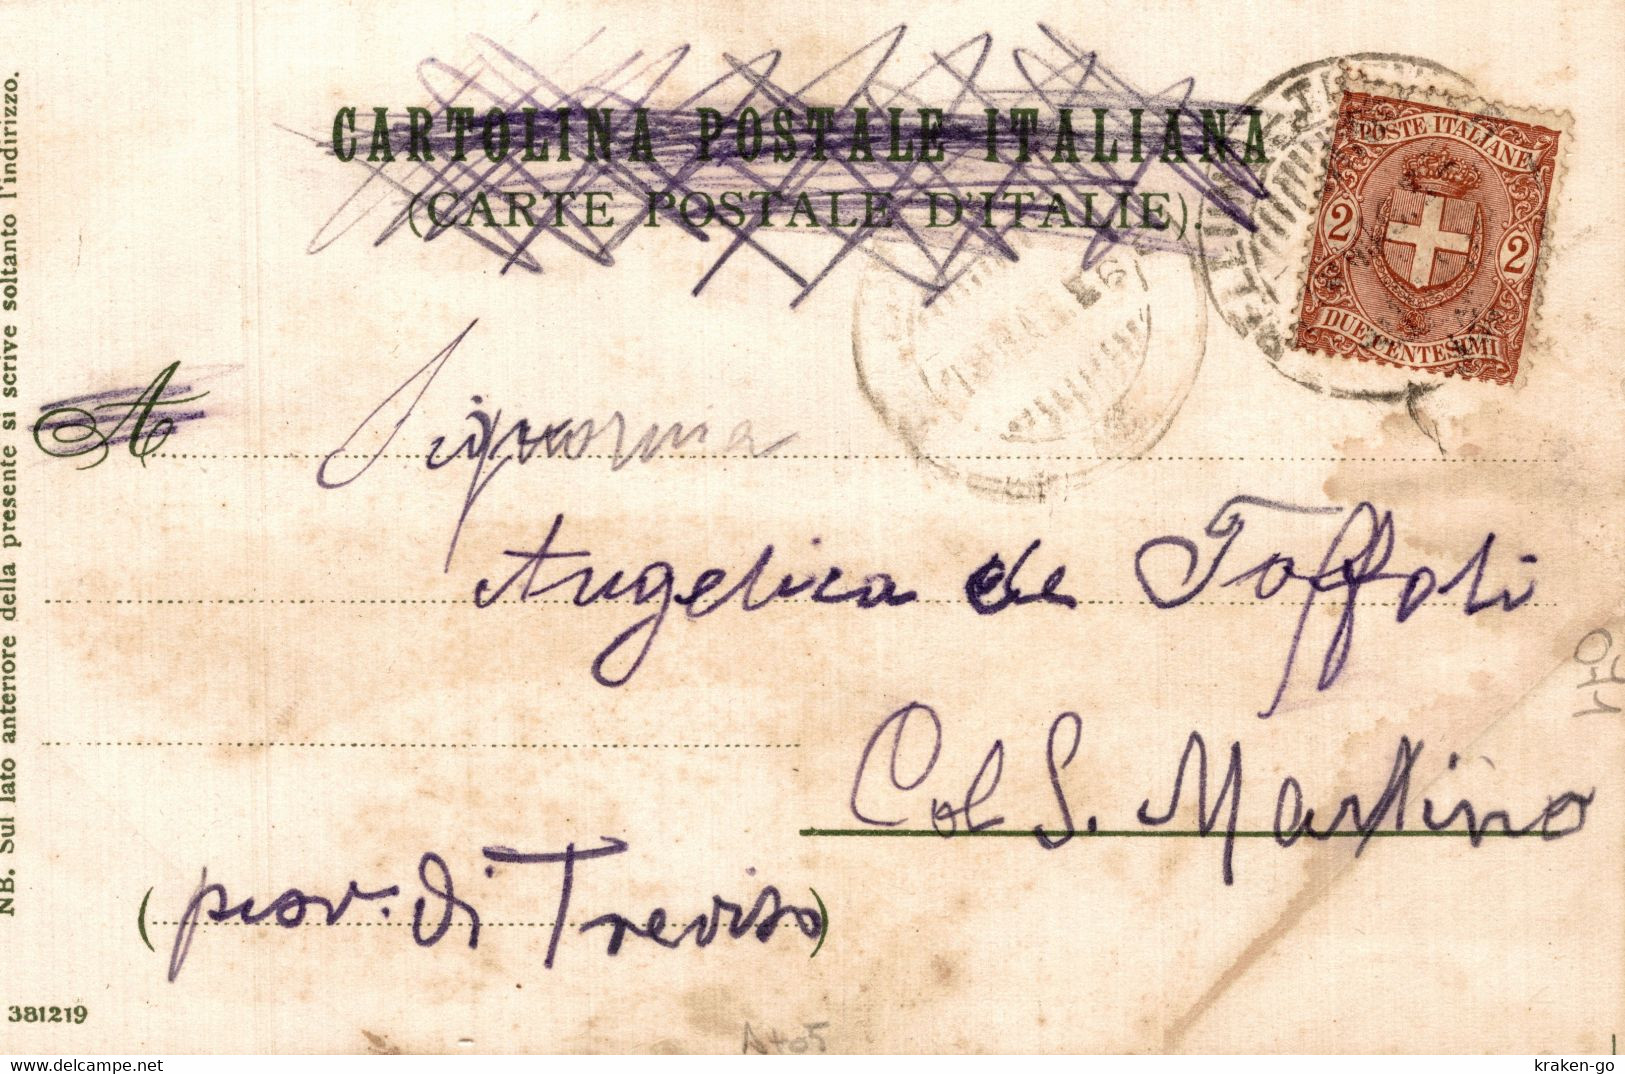 CARTOLINA POSTALE ITALIANA
(CARTE POSTALE D'ITALIE).
POSTE ITALIANE
2 2
DUE CENTESIMI
A Signorina
Angelica de Toffoli
Col S. Martino
(prov. di Treviso)
NB. Sul lato anteriore della presente si scrive soltanto l'indirizzo.
381219
kraken-go